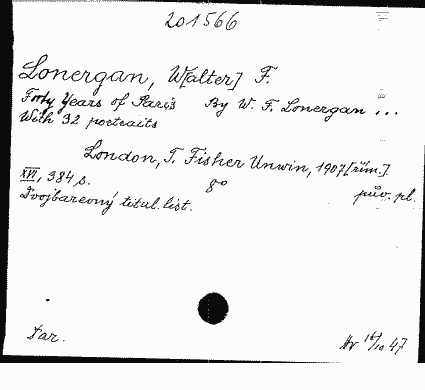 201566
Lonergan, W[alter] F.
Forty Years of Paris By W. F. Lonergan ...
With 32 portraits
London, T. Fisher Unwin, 1907 [řím.].
XVI, 384 s. 8° pův. pl.
Dvojbarevný titul. list.
Dar. 47